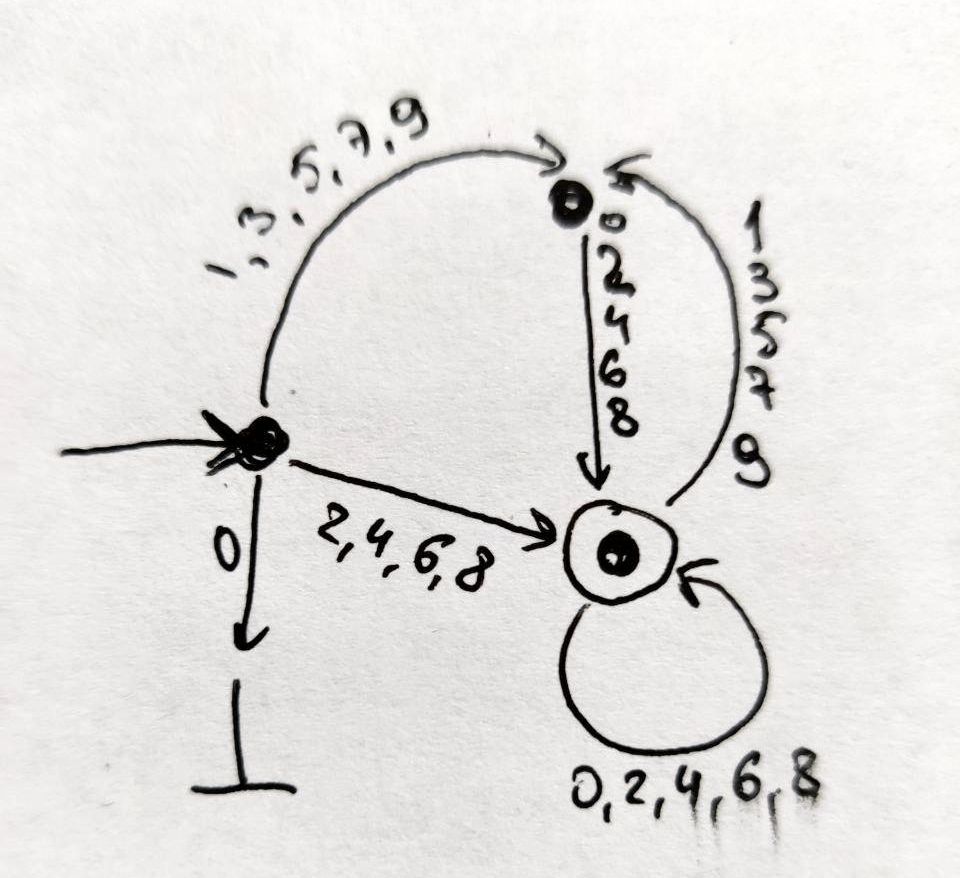 1, 3, 5, 7, 9
0
2
4
6
8
1
3
5
7
9
0
2, 4, 6, 8
0, 2, 4, 6, 8